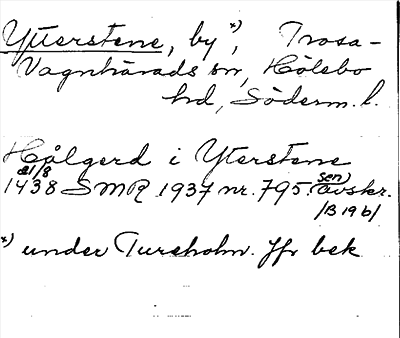 Ytterstene, by *), Trosa-
Vagnhärads sn, Hölebo
hd, Söderm. l.
Hålgerd i Yterstene
21/8
1438 SMR 1937 nr. 795. sen) avskr.
/B 19 b/
*) under Tureholm. Jfr bek